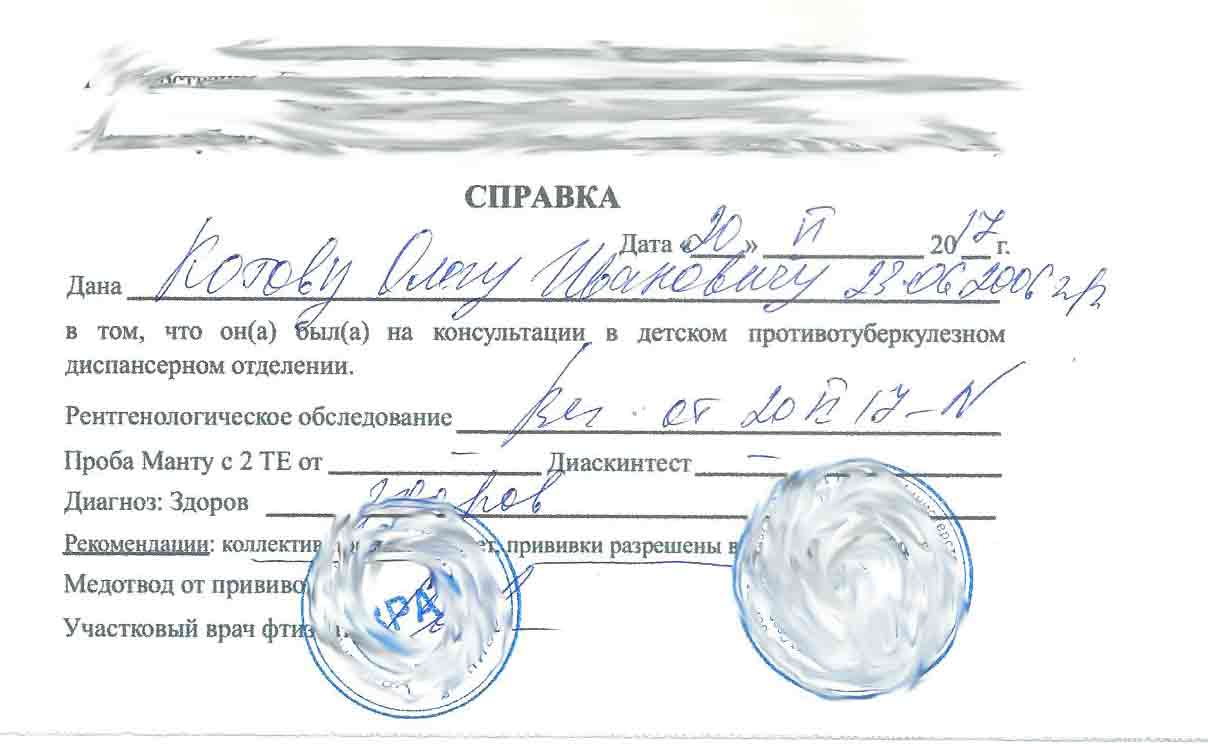 СПРАВКА
Дата «20» II 2017 г.
Дана Котову Олегу Ивановичу 23.06.2006 г/р
в том, что он(а) был(а) на консультации в детском противотуберкулезном
диспансерном отделении.
Рентгенологическое обследование от 20 II 17 – N
Проба Манту с 2 ТЕ от – Диаскинтест –
Диагноз: Здоров здоров
Рекомендации: прививки разрешены
Медотвод от
Участковый врач